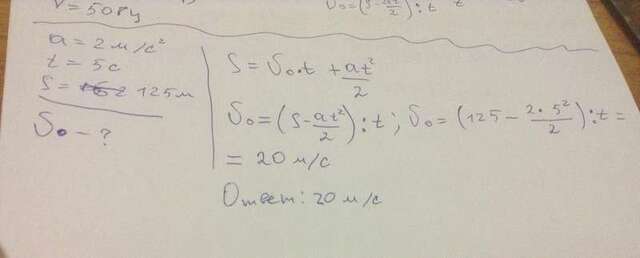 ν = 50 Гц
υ₀=(S-at²/2):t
a = 2 м/с²
t = 5 с
S = 125 м
υ₀ - ?
S = υ₀·t + at²/2
υ₀ = (S - at²/2):t ; υ₀ = (125 - 2·5²/2):t =
= 20 м/с
Ответ: 20 м/с